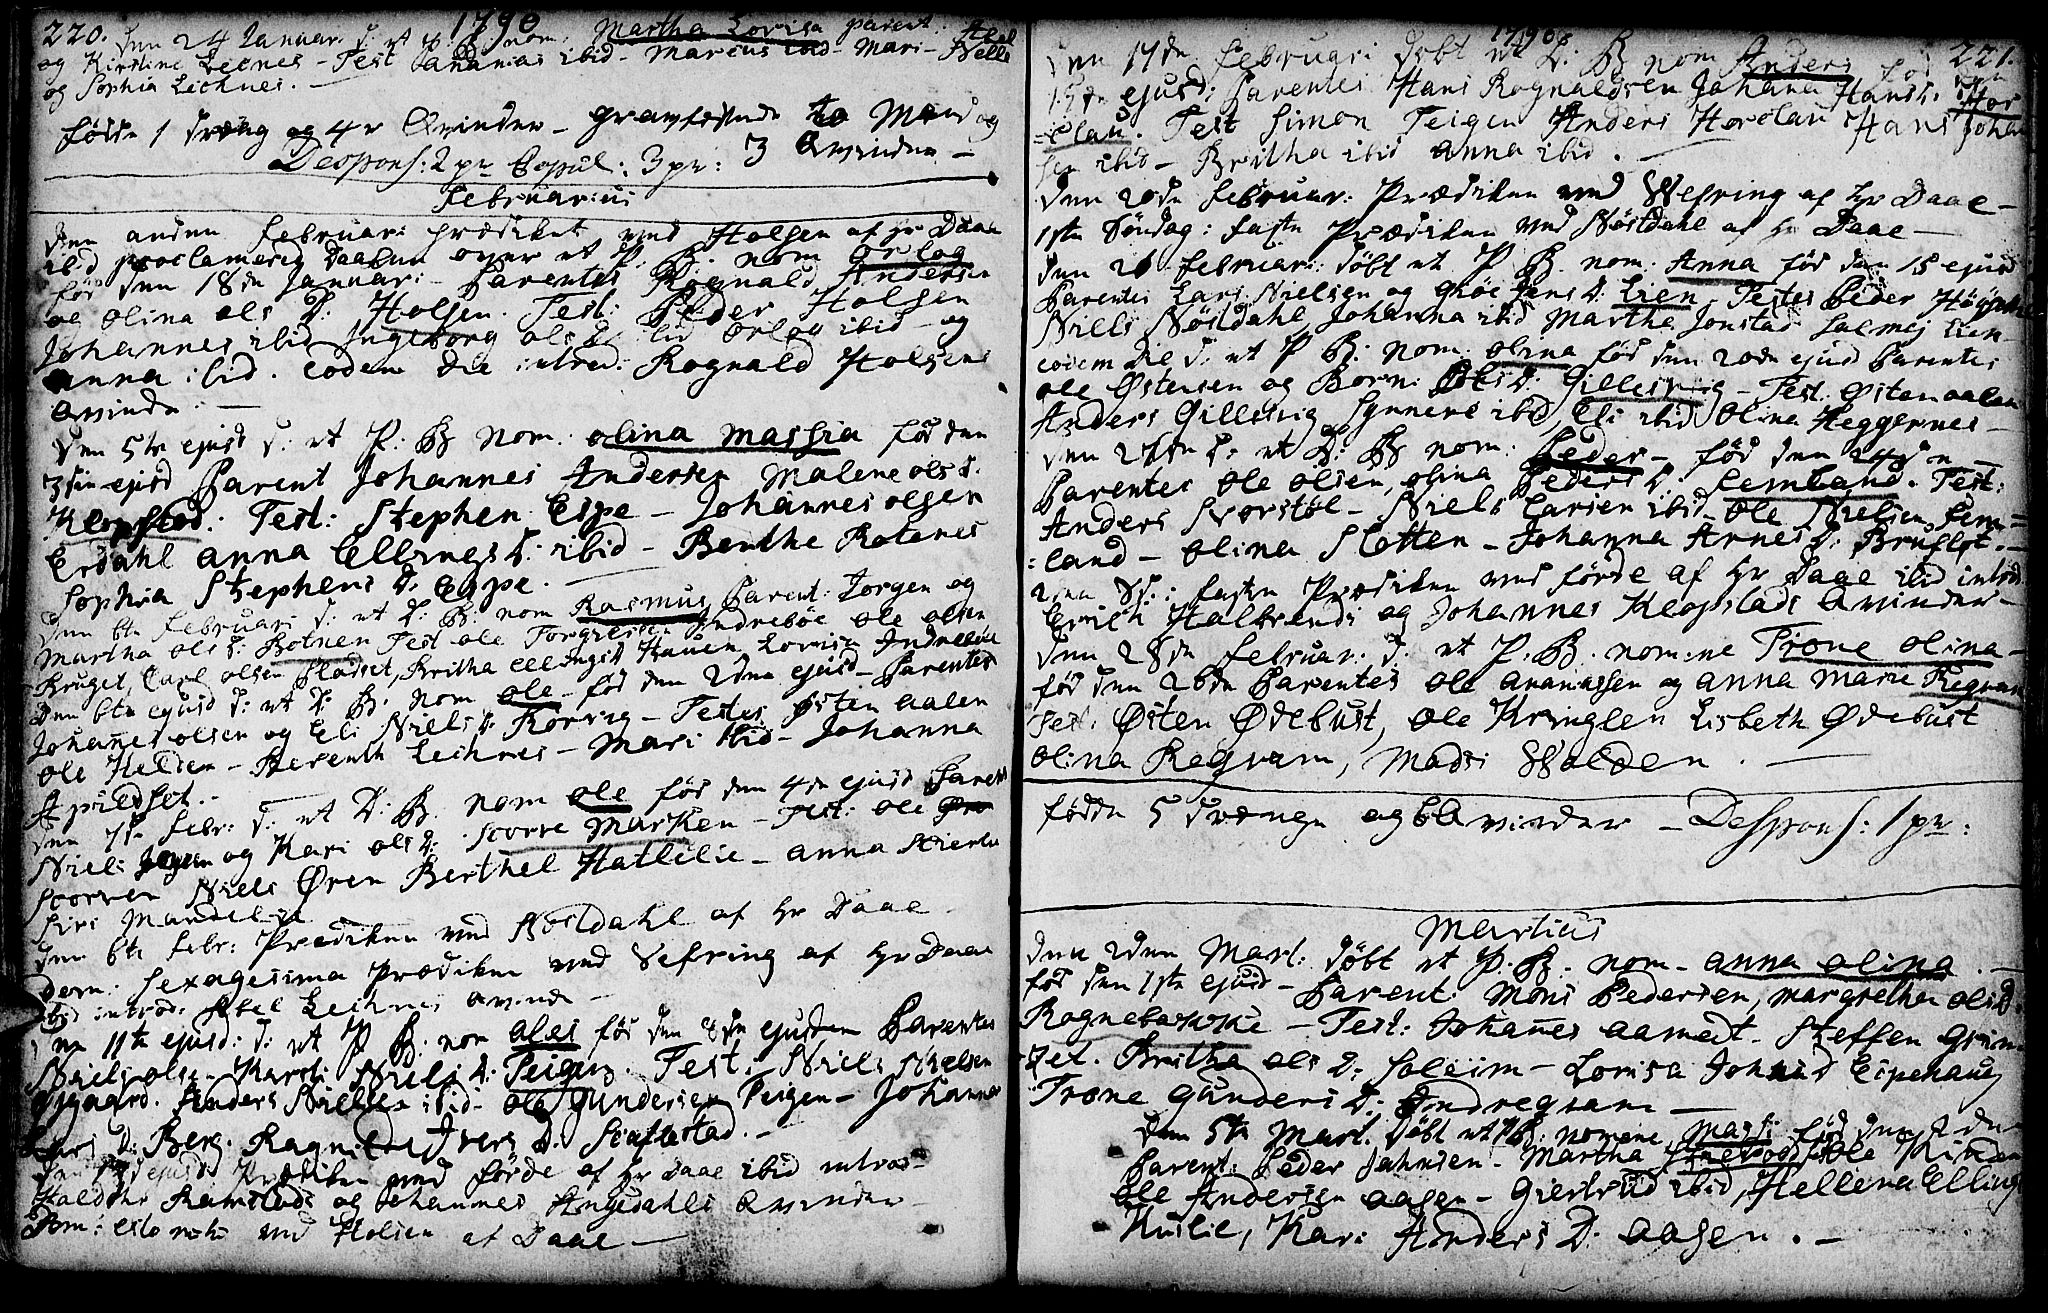 220. 1790
den 24 Januar. d: et P B nom. Martha Lovisa parent. Abel
og Kirstine Lecnes - Test Ananias ibid - Marcus ibid - Mari - Nelle
og Sophia Lechnes. -
fødde 1 dreng og 4r Qvinder - gravfestede to Mænd og
3 Qvinder -
Despons: 2 pr Copul: 3 pr:
Februarius
den anden Februari prædiket ved Holsen af Hr Daae
ibid proclamerig daaben over et P. B. nom Orlog
før den 18de Januar: - Parentes Rognald Andersen
og Olina Ols D: Holsen. Test: Peder Holsen
Johannes ibid Ingeborg Ols D ibid Orlog ibid - og
Anna ibid. eodem die introd: Rognald Holsens
Qvinde. -
den 5te ejusd d: et P. B nom. Olina Massia fød den
3die ejusd Parent Johannes Andersen Malene Ols d.
Klopstad. Test: Stephen Espe - Johannes Olsen
Erdahl Anna Ellings D: ibid - Benthe Rotenes
Sophia Stephens D. Espe. -
den 6te Februari d: et D: B: nom Rasmus Parent: Jørgen og
Martha Ols D: Botnen Test Ole Torgersen Indrebøe Ole Olsen
Bruget, Carl Olsen Pladset, Britha Ellingsd Hauen Lovisa Indrebøe
den 6te ejusd d: et D: B. nom Ole - fød den 2den ejusd - Parentes
Johannes Olsen og Eli Niels D: Korsvig - Testes Østen Aalen
Ole Helden - Berenth Lechnes - Mari ibid - Johanna
Apledset. -
den 7de Febr: d: et D: B. nom Ole fød den 4de ejusd Parent
Niels og Kari Ols D: Scorve Marken - Test: Ole
Scorven Niels Øren Berthel Hatlelie - Anna
Siri
den 6te Febr: Prædiken ved Nøsdahl af Hr Daae
Dom. Sexagesima Prædiken ved Vefring af Hr Daae
ibid introd: Abel Lechnes Qvinde -
den 11te ejusd: d: et P B. nom Oles fød den 8de ejusdem Parentes
Niels Olsen Karoli Niels D: Teigen. Test: Niels Nielsen
Anders Nielsen ibid - Ole Gundersen Teigen - Johanna
Lars D: Berg. Ragnilde Ivers D. Scaflestad. -
ejusd Prædiken ved Førde af Hr Daae ibid introd:
Haldor Ramstads og Johannes Angedahls Qvinder -
Dom: Esto mihi ved Holsen af Daae -
1790. 221.
den 17de Februari døbt et D: B nom Anders fød den
15de ejusd: Parentes Hans Rognaldsen Johana Hans D. Hor
=slau. Test Simon Teigen Anders Horslau Hans Johan
sen ibid - Britha ibid Anna ibid. -
den 20de Februar. Prædiken ved Vefring af Hr Daae -
1ste Søndag: faste Prædiken ved Nøsdahl af Hr Daae -
den 21 Februar: døbt et P B. nom. Anna fød den 15 ejusd
Parentes Lars Nielsen og Grøe Jens D: Lien - Testes Peder
Niels Nøsdahl Johanna ibid Martha Jonstad Salmej Lien -
eodem die d: et P B: nom. Olina fød den 20de ejusd Parentes
Ole Østensen og Born: Ols D: Gillesvig - Test: Østen Aalen
Anders Gillesvig Synneve ibid Eli ibid Olina Heggernes -
den 27de d: et D: B nom. Peder - fød den 24de -
Parentes Ole Olsen, Olina Peders D: Femland. Test:
Anders Svorstøl - Niels Larsen ibid - Ole Nielsen Fem=
=land - Olina Slotten - Johanna Arnes D: Bruflot. -
2den S: fasten Prædiken ved Førde af Hr Daae ibid introd.
Erich Halbrends og Johannes Klopstads Qvinder -
den 28de Februar. d. et P. B. nomine Trone Olina -
fød den 26de Parentes Ole Ananiassen og Anna Marie Regvam
Test. Østen Ødebust, Ole Kringlen Lisbeth Ødebust
Olina Regvam, Madsi Volden. -
fødde 5 drenge og 6 Qvinder - Despons: 1 pr:
Martius
den 2den Mart: døbt et P. B. nom - Anna Olina. -
fød den 1ste ejusd - Parent: Mons Pedersen, Margretha Ols D.
Rognebakke - Test: Johannes Aamodt - Steffen Grim
zet. Britha Ols D: Soleim - Lovisa Johs D Espehaug
Trone Gunders D: Indregvam -
den 5te Mart. døbt et P B. nomine Mari fød den 2den
Parent: Peder Jahnsen - Martha Ole
Ole Andersen Aasen - Giertrud ibid, Hellena Ellings
Huslie, Kari Anders D. Aasen. -